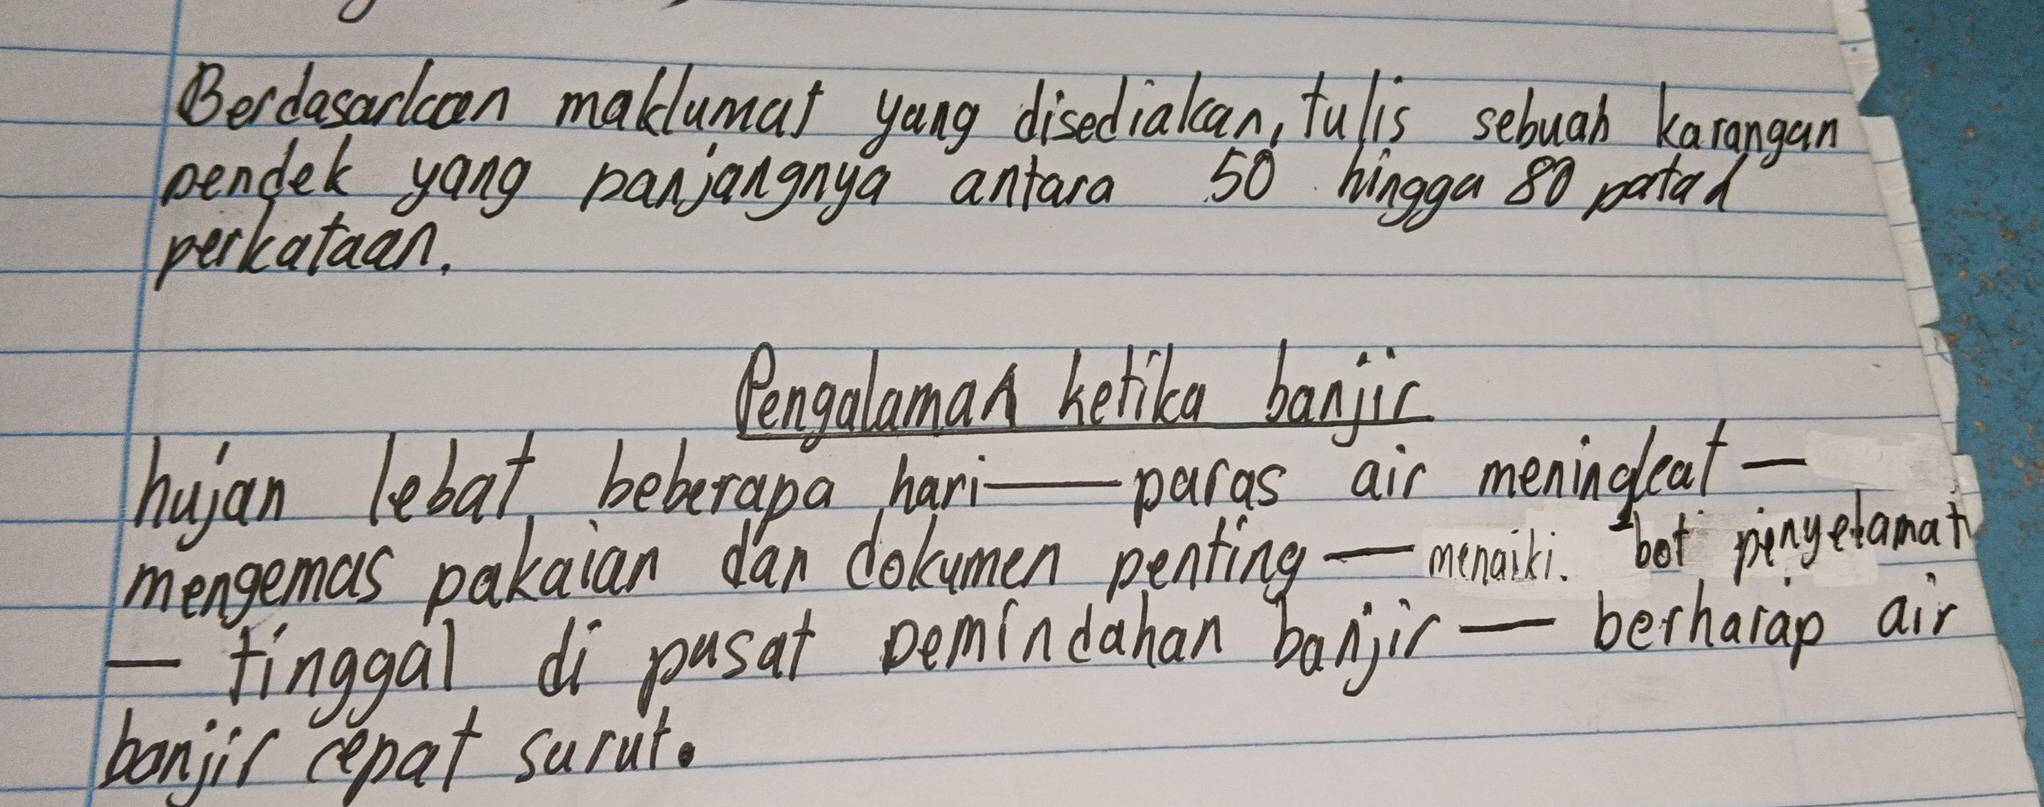 Berdasarkan maklumat yang disediakan, tulis sebuah karangan
pendek yang panjangnya antara 50 hingga 80 patah
perkataan.
Pengalaman ketika banjir
hujan lebat beberapa hari — paras air meningkat —
mengemas pakaian dan dokumen penting — menaiki. bot penyelamat
— tinggal di pusat pemindahan banjir — berharap air
banjir cepat surut.